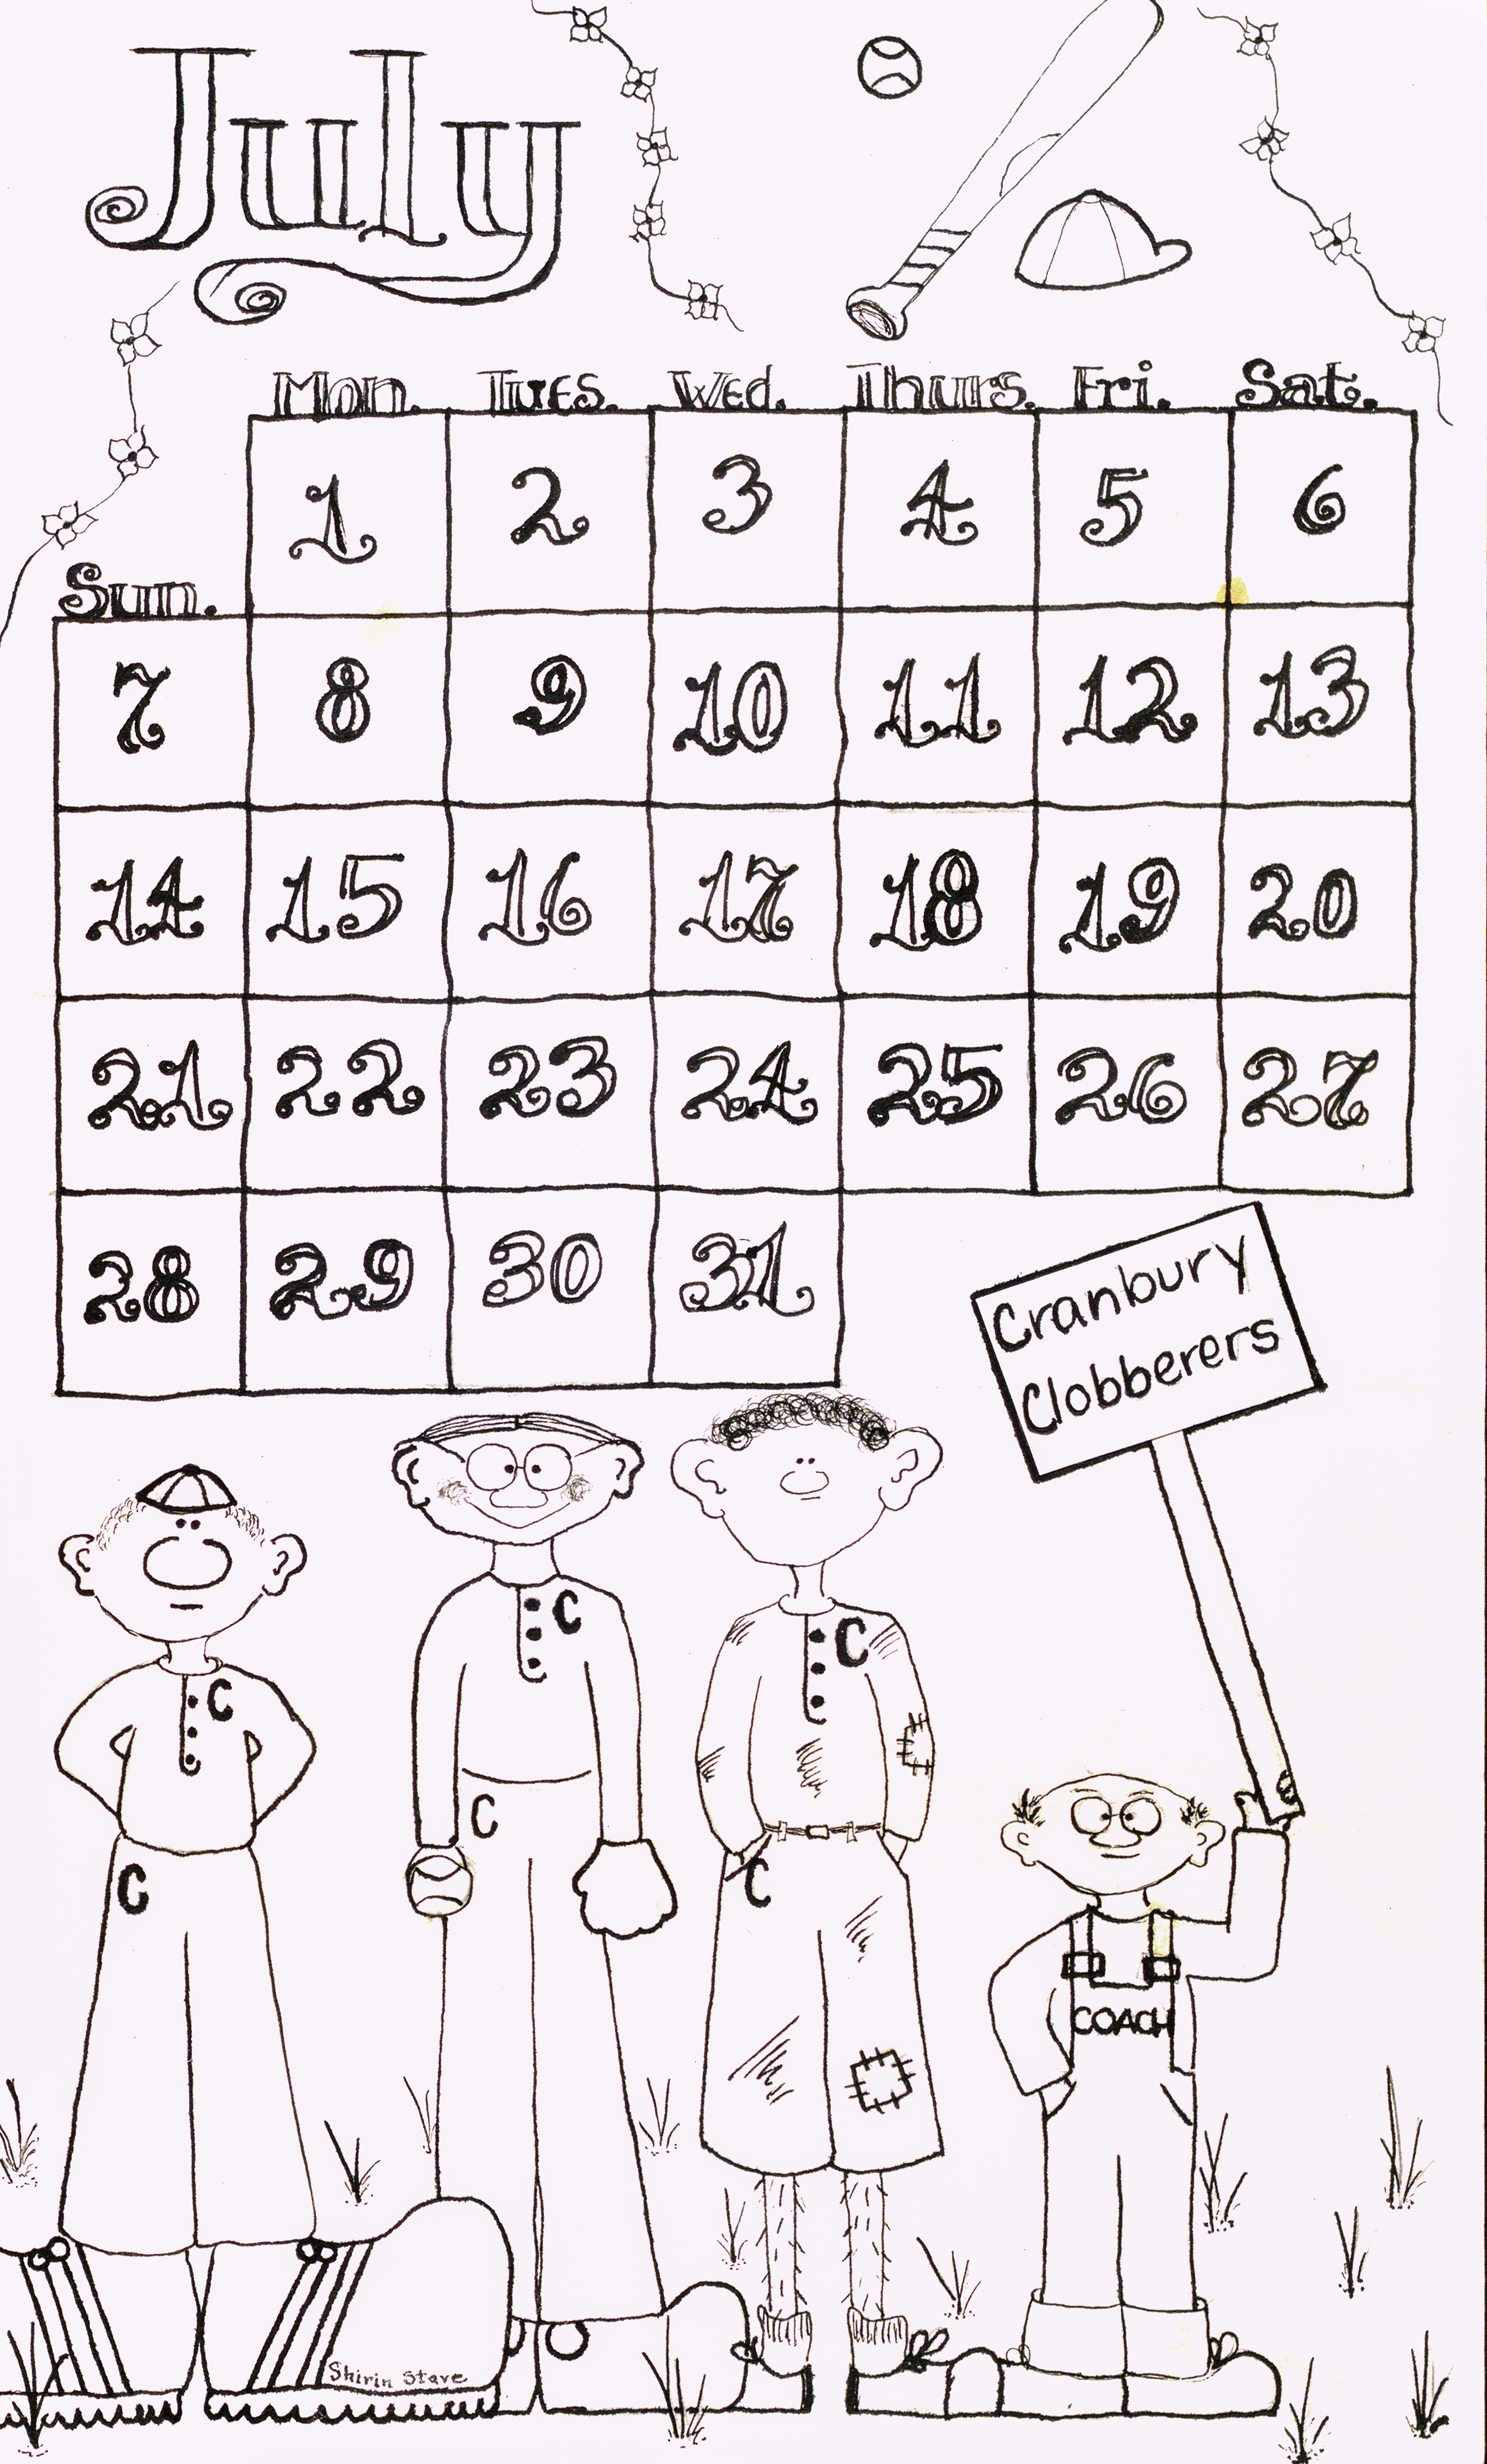 July
Mon. Tues. Wed. Thurs. Fri. Sat.
1 2 3 4 5 6
Sun.
7 8 9 10 11 12 13
14 15 16 17 18 19 20
21 22 23 24 25 26 27
28 29 30 31
Cranbury
Clobberers
C
C
C
C
C
C
COACH
Shirin Stave